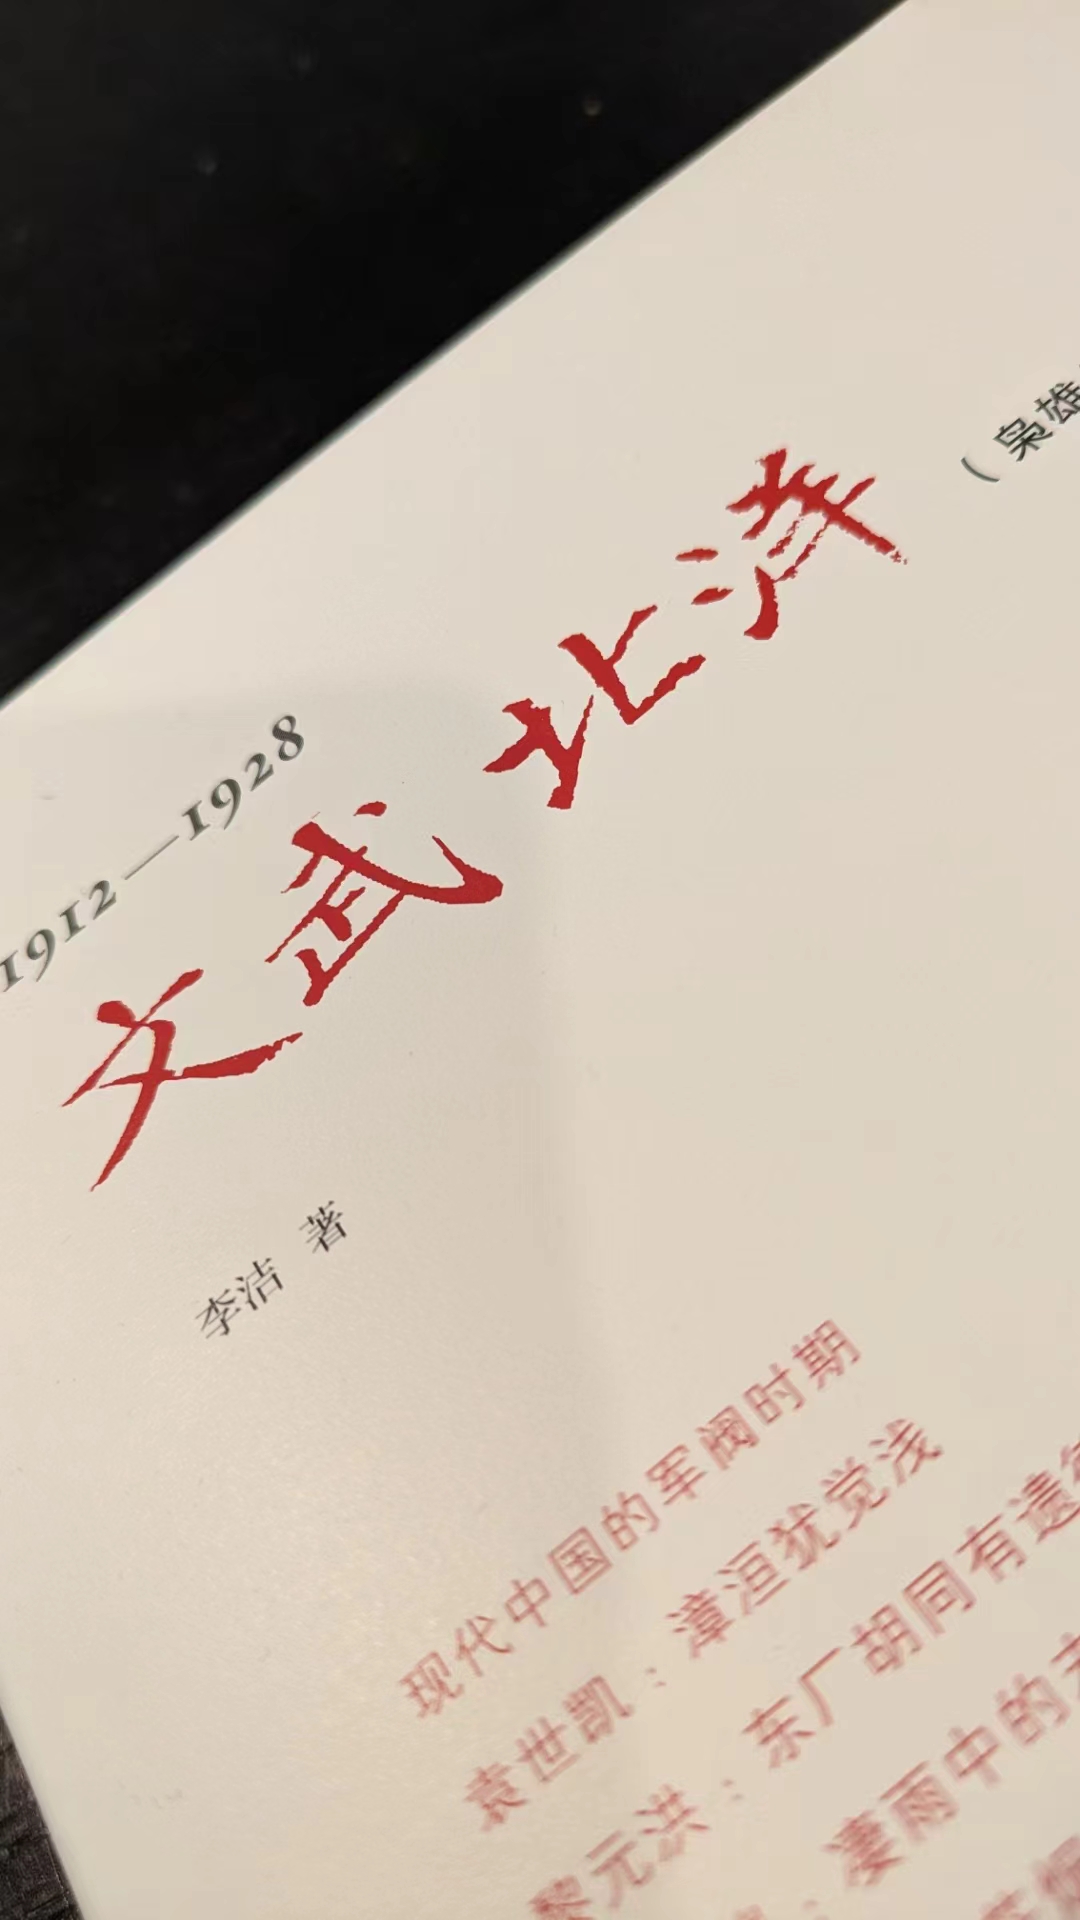 1912—1928
文武北洋
（枭雄
李洁 著
现代中国的军阀时期
袁世凯：漳洹犹觉浅
黎元洪：东厂胡同有遗
：凄雨中的